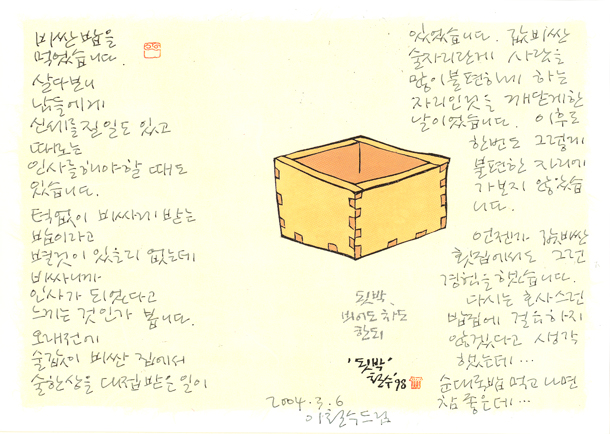 비싼 밥을
먹었습니다.
살다보니
남들에게
신세를 질 일도 있고
따로는
인사를 해야 할 때도
있습니다.
턱없이 비싸게 받는
밥이라고
별것이 있을리 없는데
비싸니까
인사가 되었다고
느끼는 것인가 봅니다.
오래전에
술값이 비싼 집에서
술한상을 대접 받은 일이
있었습니다. 값비싼
술자리란게 사람을
많이 불편하게 하는
자리인 것을 깨닫게한
날이었습니다. 이후로
한번도 그렇게
불편한 자리에
가보지 않았습
니다.
언젠가 값비싼
횟집에서도 그런
경험을 했습니다.
다시는 호사스런
밥집에 걸음하지
않겠다고 생각
했는데…
순대국밥 먹고 나면
참 좋은데…
됫박,
비어도 차도
한되
'됫박'
철수 '98
2004.3.6
이철수드림